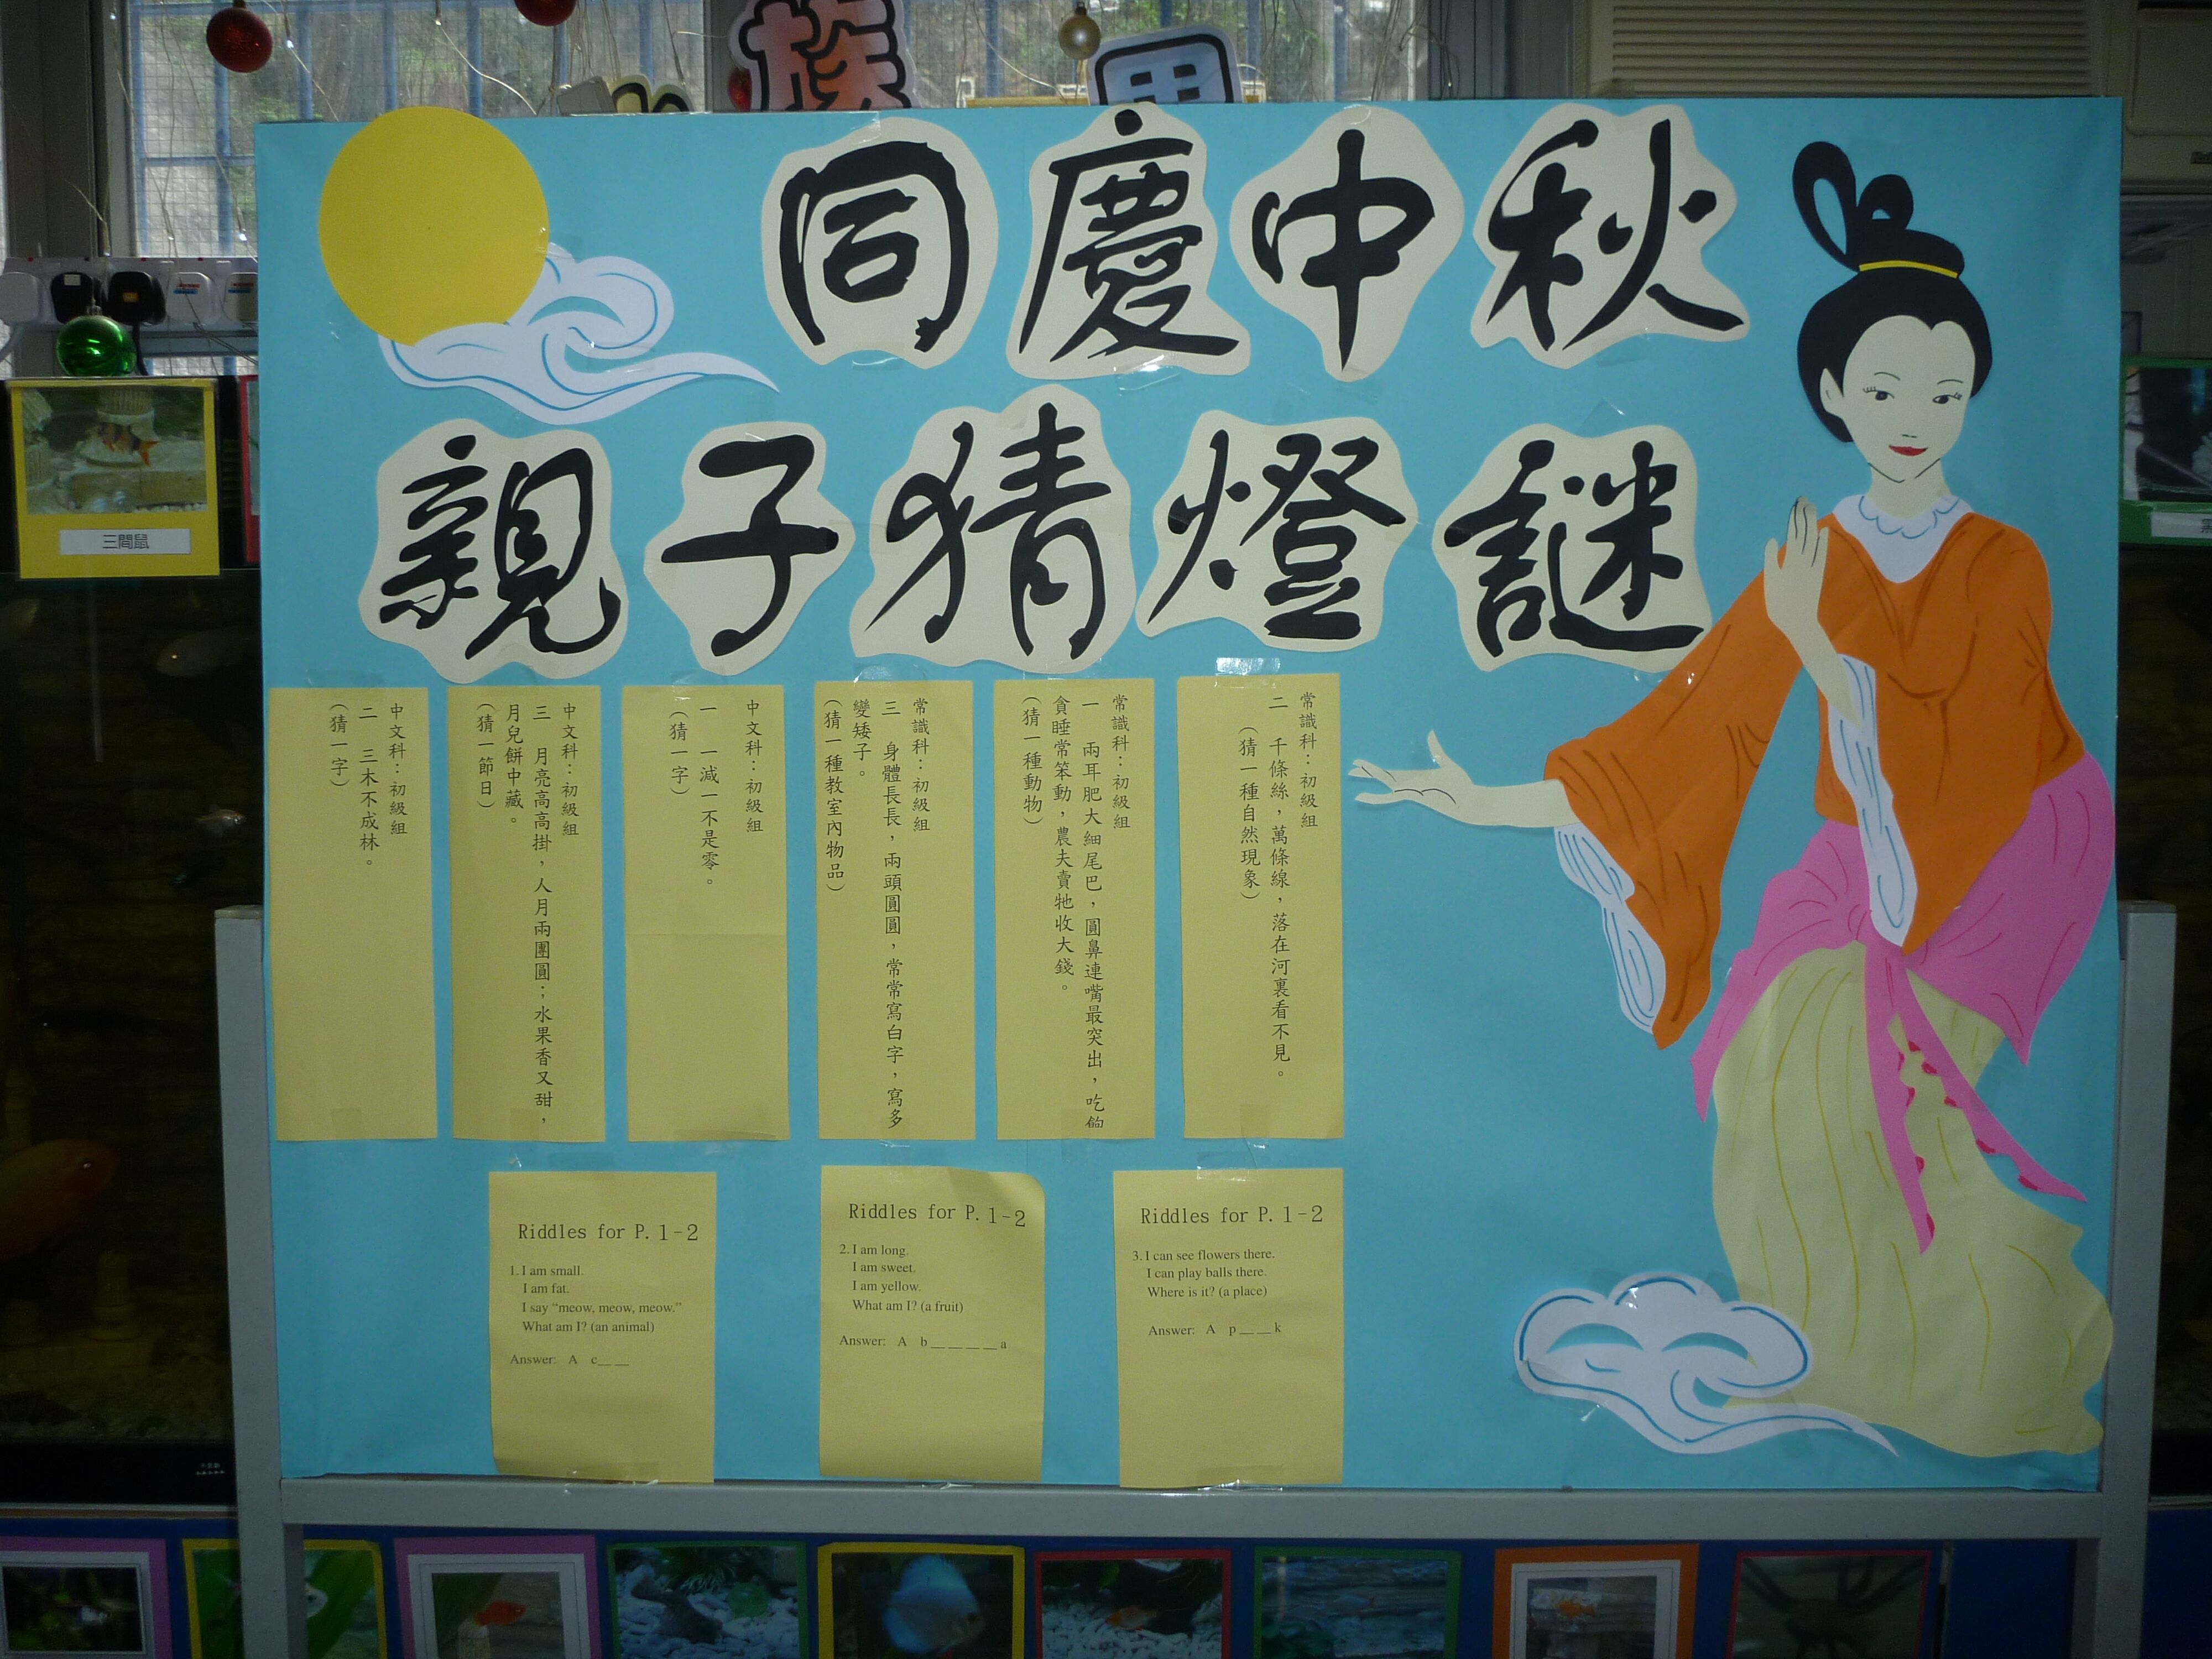 族
同慶中秋
親子猜燈謎
三間鼠
常識科：初級組
二 千條絲，萬條線，落在河裏看不見。
（猜一種自然現象）
常識科：初級組
一 兩耳肥大細尾巴，圓鼻連嘴最突出，吃飽
貪睡常笨動，農夫賣牠收大錢。
（猜一種動物）
常識科：初級組
三 身體長長，兩頭圓圓，常常寫白字，寫多
變矮子。
（猜一種教室內物品）
中文科：初級組
一 一減一不是零。
（猜一字）
中文科：初級組
三 月亮高高掛，人月兩團圓；水果香又甜，
月兒餅中藏。
（猜一節日）
中文科：初級組
二 三木不成林。
（猜一字）
Riddles for P. 1-2
1. I am small.
I am fat.
I say “meow, meow, meow.”
What am I? (an animal)
Answer: A c__ __
Riddles for P. 1-2
2. I am long.
I am sweet.
I am yellow.
What am I? (a fruit)
Answer: A b __ __ __ __ a
Riddles for P. 1-2
3. I can see flowers there.
I can play balls there.
Where is it? (a place)
Answer: A p __ __ k